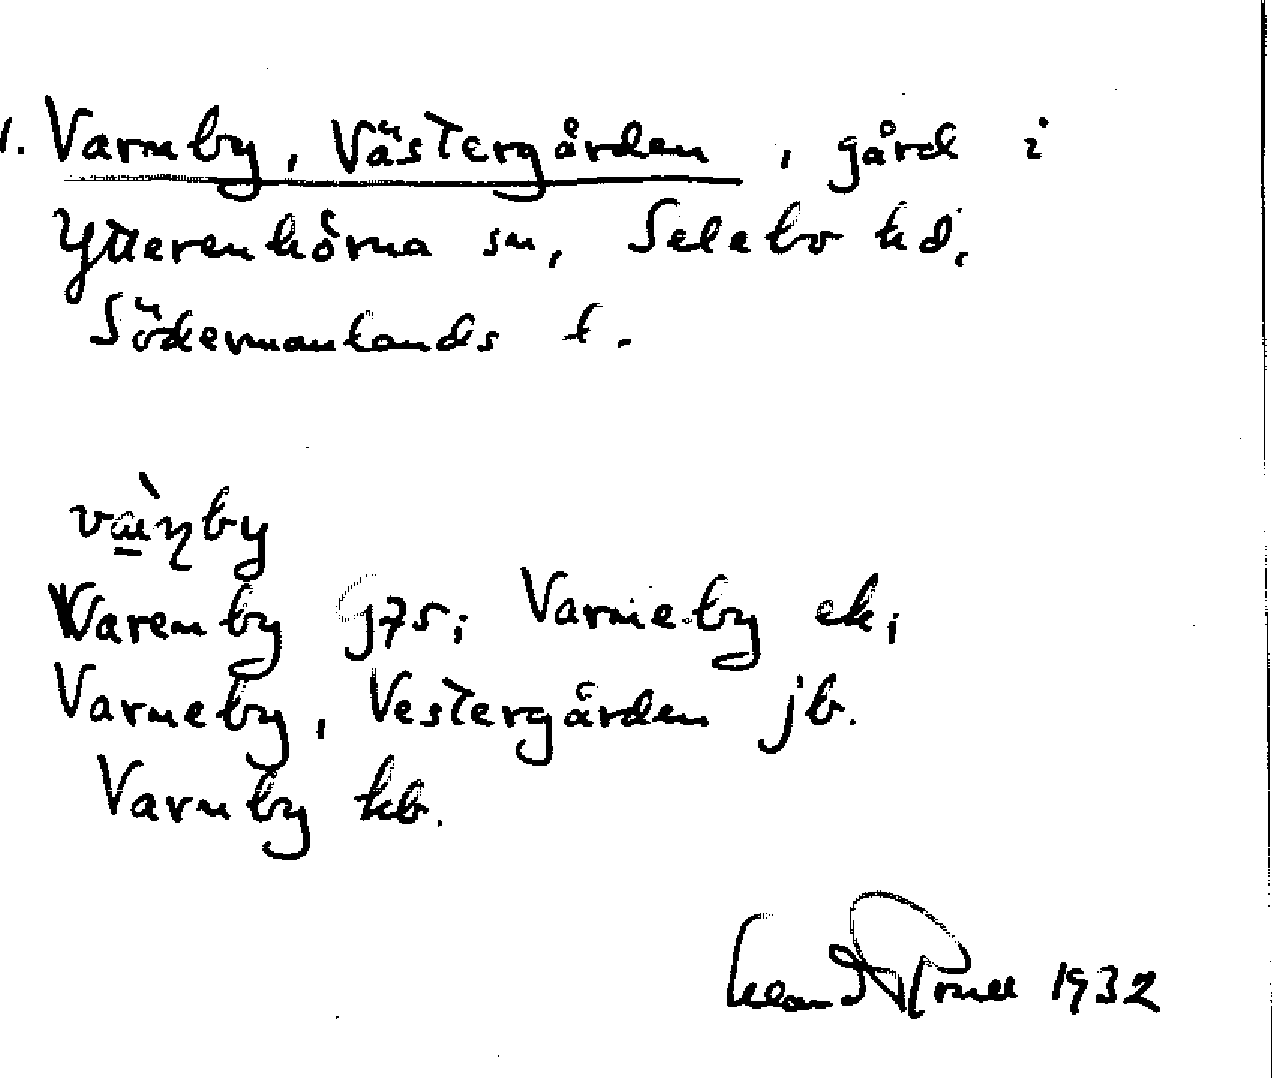 1. Varnby, Västergården, gård i
Ytterenhörna sn, Selebo hd,
Södermanlands l.
Varenby G75; Varneby ek;
Varneby, Vestergården jb.
Varnby kb.
1932